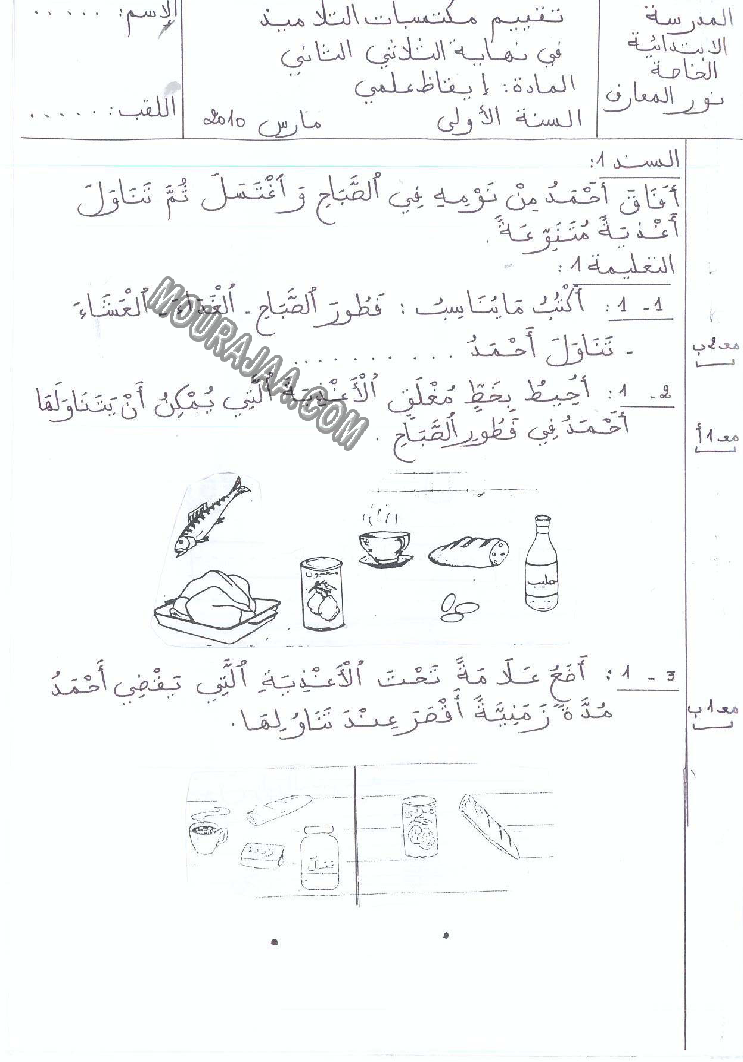 المدرسة
الابتدائية
الخاصة
نور المعارف
تقييم مكتسبات التلاميذ
في نهاية الثلاثي الثاني
المادة: إيقاظ علمي
السنة الأولى مارس 2010
الإسم: . . . . .
اللقب: . . . . .
السند 1:
أَفَاقَ أَحْمَدُ مِنْ نَوْمِهِ فِي الصَّبَاحِ وَ اغْتَسَلَ ثُمَّ تَنَاوَلَ
أَغْذِيَةً مُتَنَوِّعَةً.
التعليمة 1:
1 - 1: أَكْتُبُ مَا يُنَاسِبُ: فَطُورَ الصَّبَاحِ - الْغَدَاءَ - الْعَشَاءَ
مع2ب
- تَنَاوَلَ أَحْمَدُ . . . . . . . . . .
2 - 1: أُحِيطُ بِخَطٍّ مُغْلَقٍ الْأَغْذِيَةَ الَّتِي يُمْكِنُ أَنْ يَتَنَاوَلَهَا
أَحْمَدُ فِي فَطُورِ الصَّبَاحِ.
مع1أ
معجون
حليب
3 - 1: أَضَعُ عَلَامَةً تَحْتَ الْأَغْذِيَةِ الَّتِي يَقْضِي أَحْمَدُ
مُدَّةً زَمَنِيَّةً أَقْصَرَ عِنْدَ تَنَاوُلِهَا.
مع1ب
MOURAJAA.COM